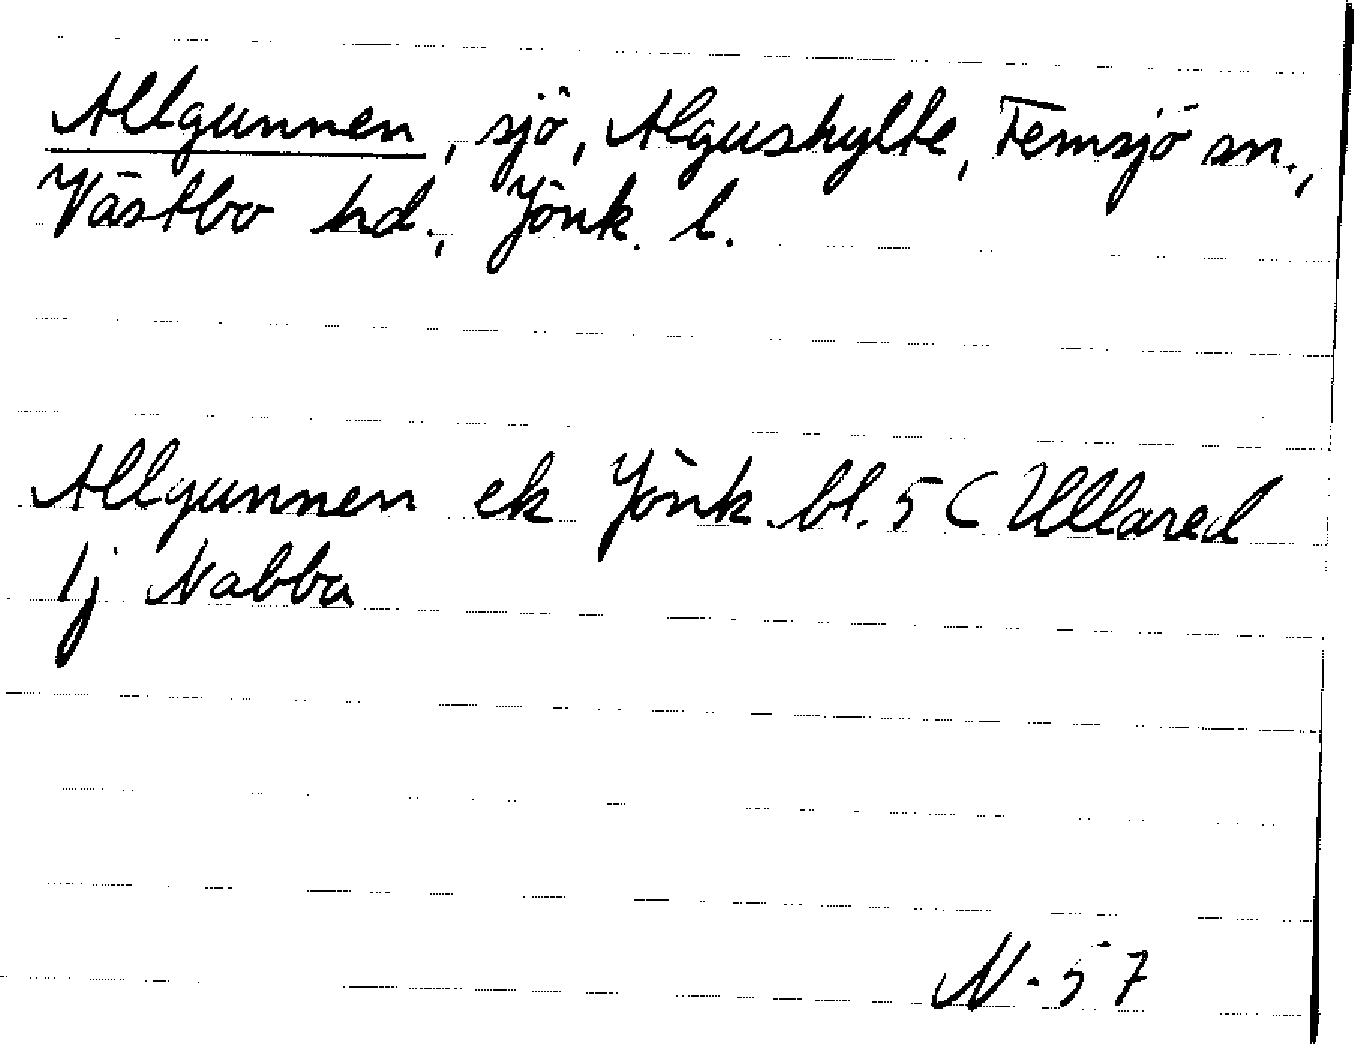 Allgunnen, sjö, Algushylte, Femsjö sn.,
Västbo hd., Jönk. l.
Allgunnen ek Jönk. bl. 5 C Ullared
1j Nabba
N-57